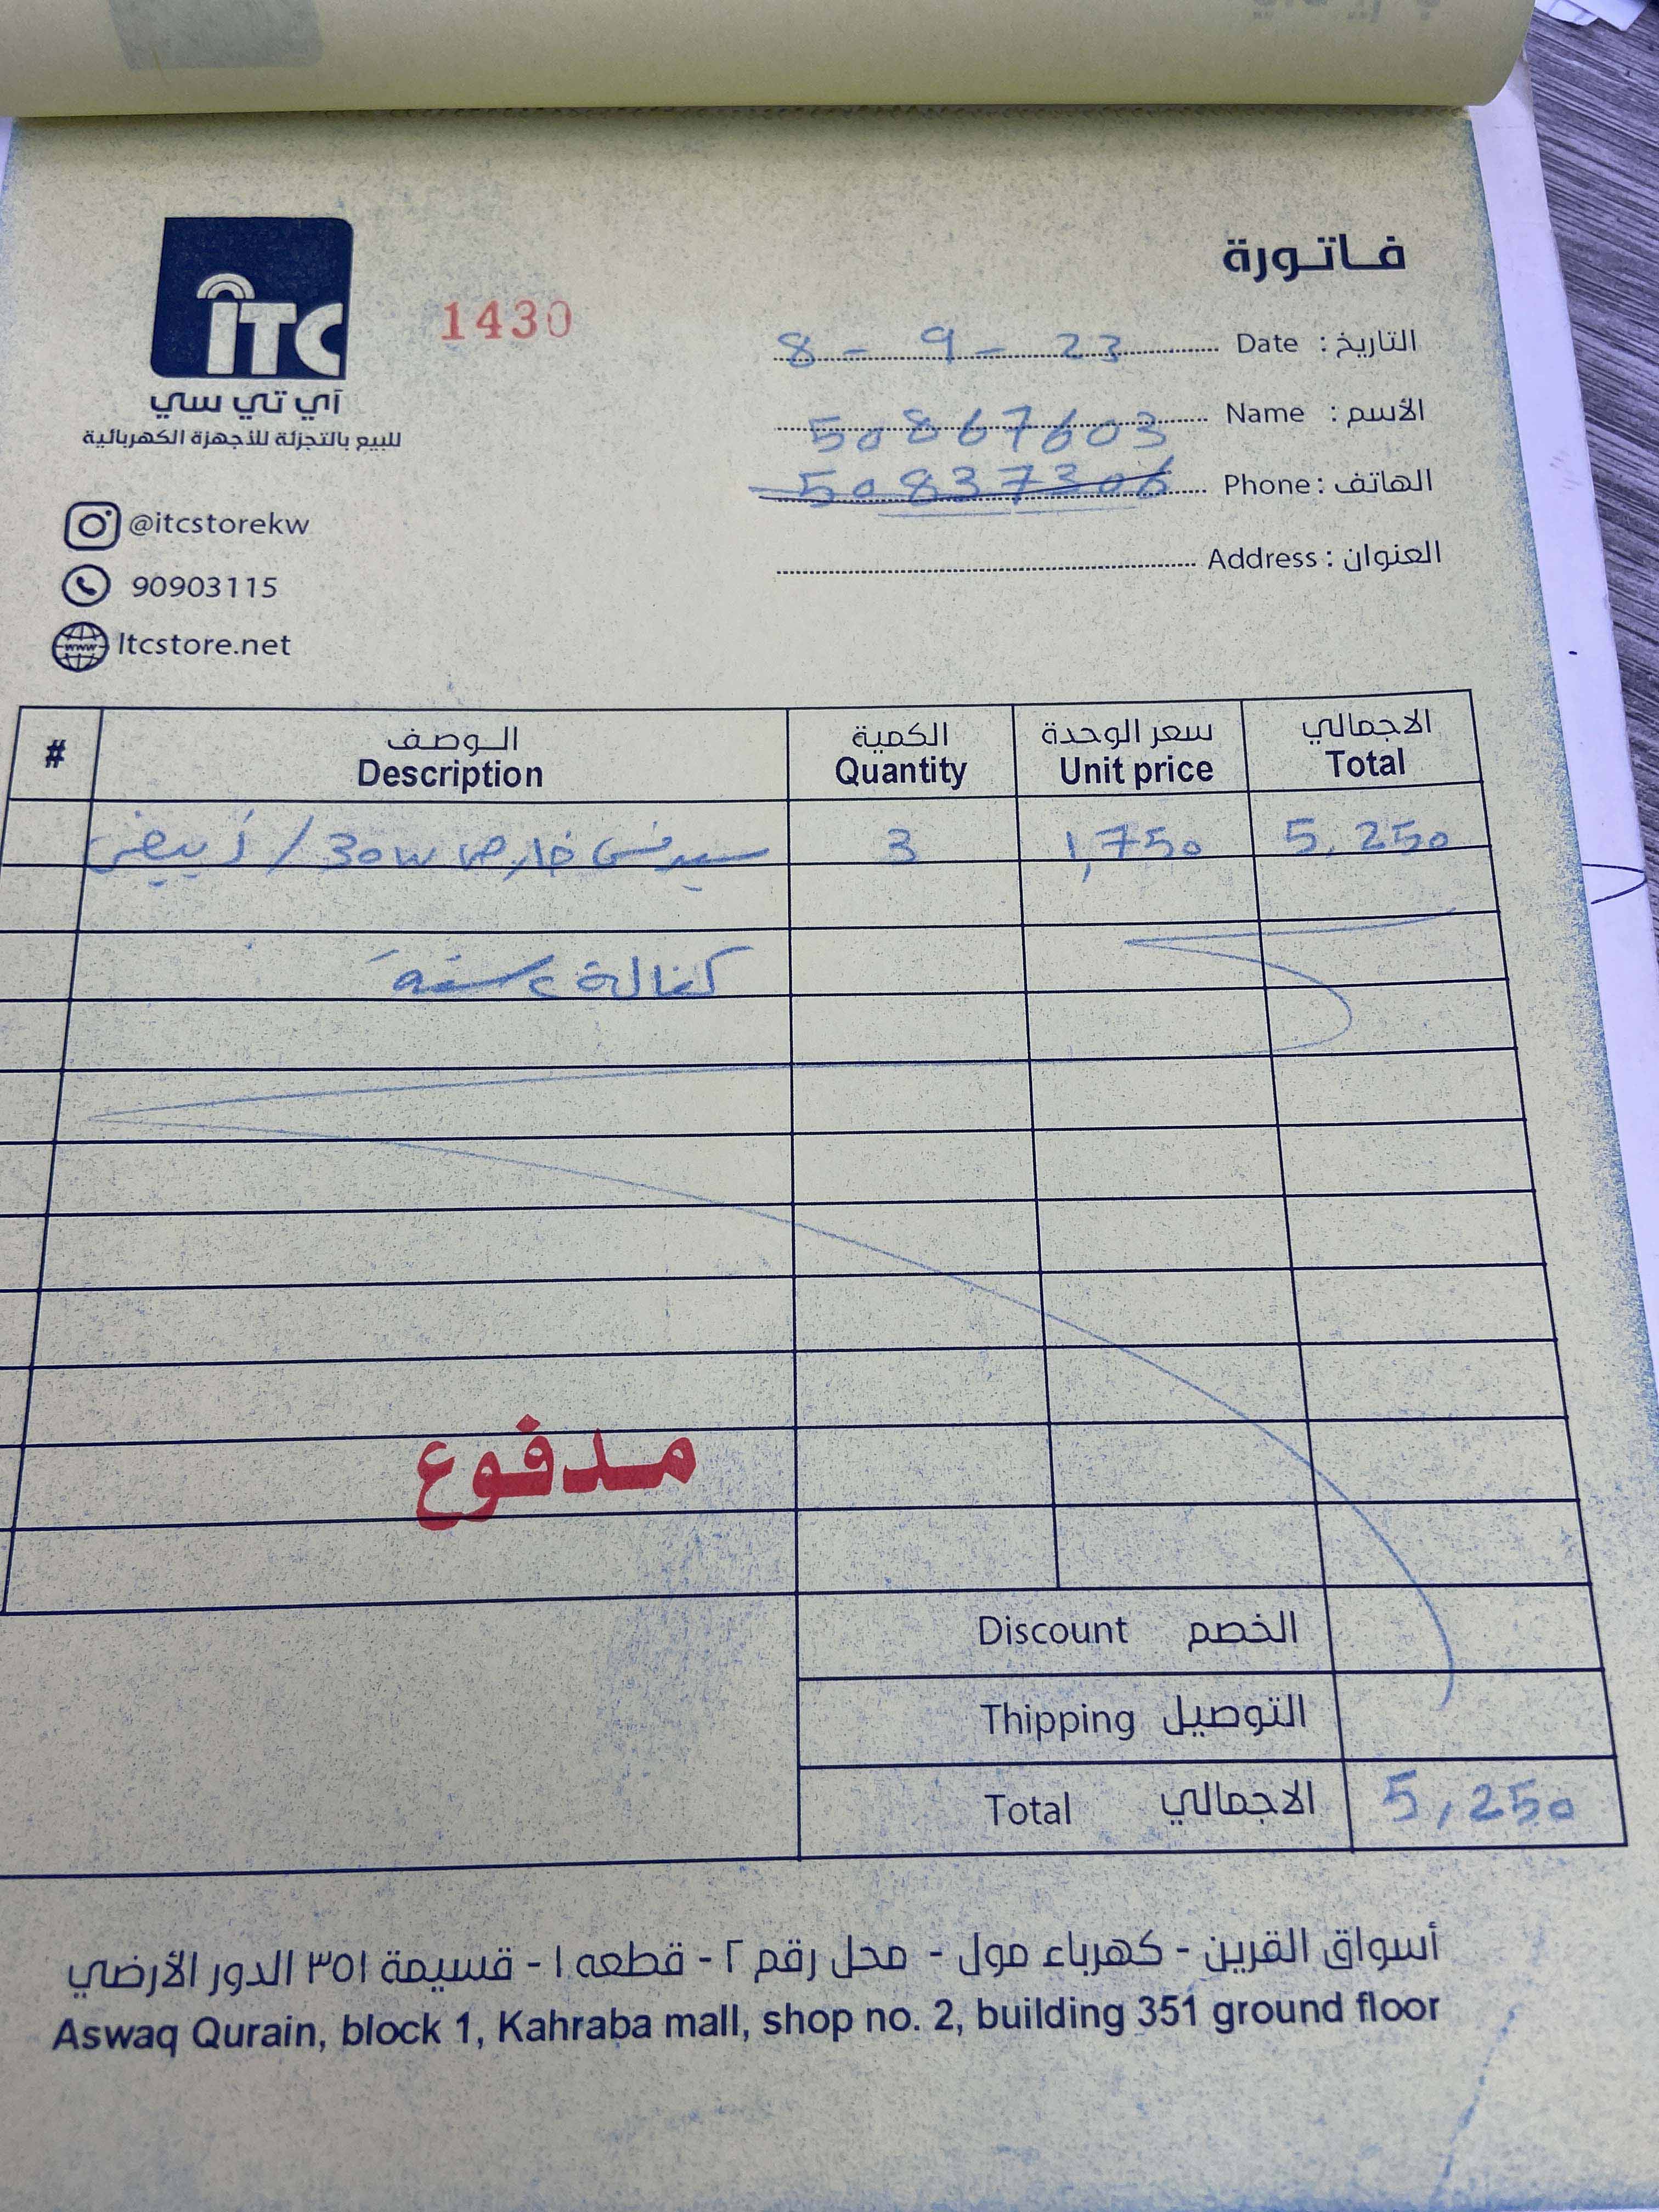 فاتورة
ITC
آي تي سي
للبيع بالتجزئة للأجهزة الكهربائية
1430
التاريخ : Date 8 - 9 - 23
الأسم : Name 50867603
الهاتف : Phone 50837306
العنوان : Address
@itcstorekw
90903115
www
Itcstore.net
# الوصف الكمية سعر الوحدة الاجمالي
Description Quantity Unit price Total
خارجي 30w / أبيض 3 1,750 5,250
كفالة سنة
مدفوع
Discount الخصم
Thipping التوصيل
Total الاجمالي 5,250
أسواق القرين - كهرباء مول - محل رقم ٢ - قطعه ١ - قسيمة ٣٥١ الدور الأرضي
Aswaq Qurain, block 1, Kahraba mall, shop no. 2, building 351 ground floor